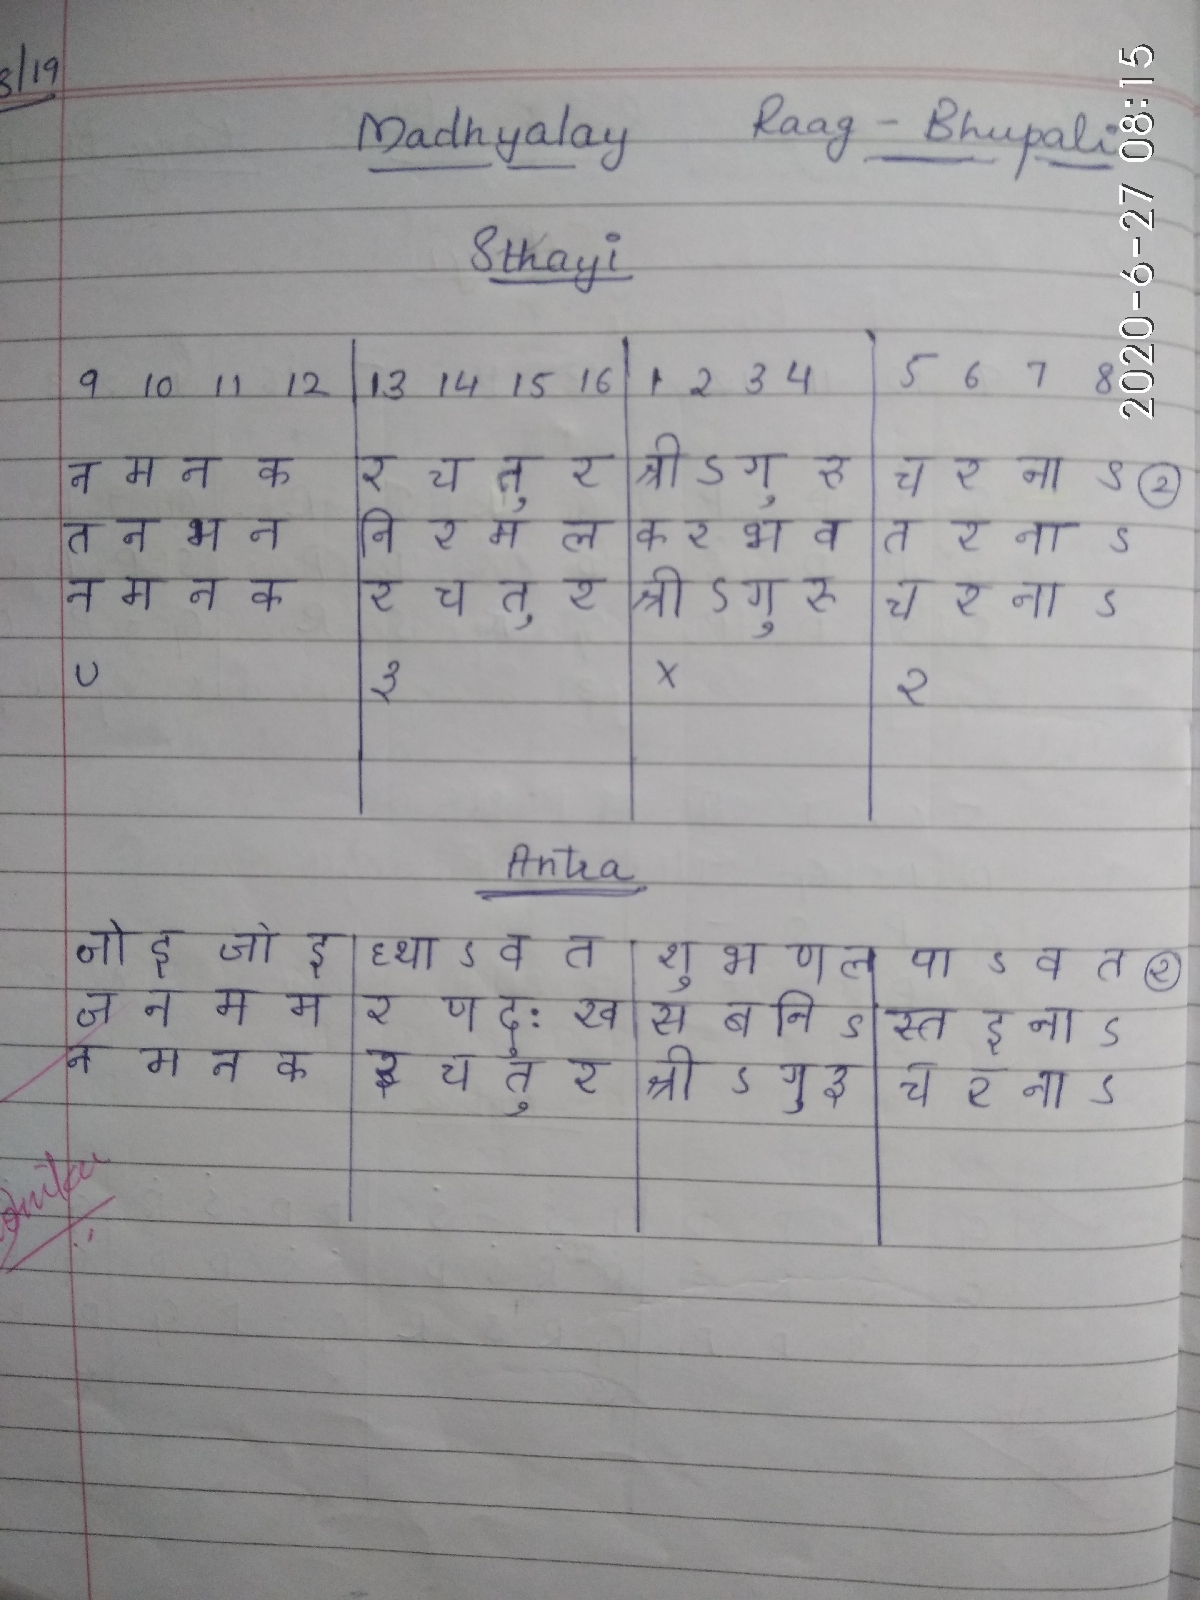 8/19
Madhyalay Raag - Bhupali
Sthayi
9 10 11 12 | 13 14 15 16 | 1 2 3 4 | 5 6 7 8
न म न क | र च तु र | श्री ऽ गु रु | च र ना ऽ (2)
त न भ न | नि र म ल | क र भ व | त र ना ऽ
न म न क | र च तु र | श्री ऽ गु रु | च र ना ऽ
U ३ X २
Antra
जो इ जो इ | ध्या ऽ व त | शु भ ण ल | पा ऽ व त (2)
ज न म म | र ण दु: ख | स ब नि ऽ | स्त इ ना ऽ
न म न क | र च तु र | श्री ऽ गु रु | च र ना ऽ
2020-6-27 08:15